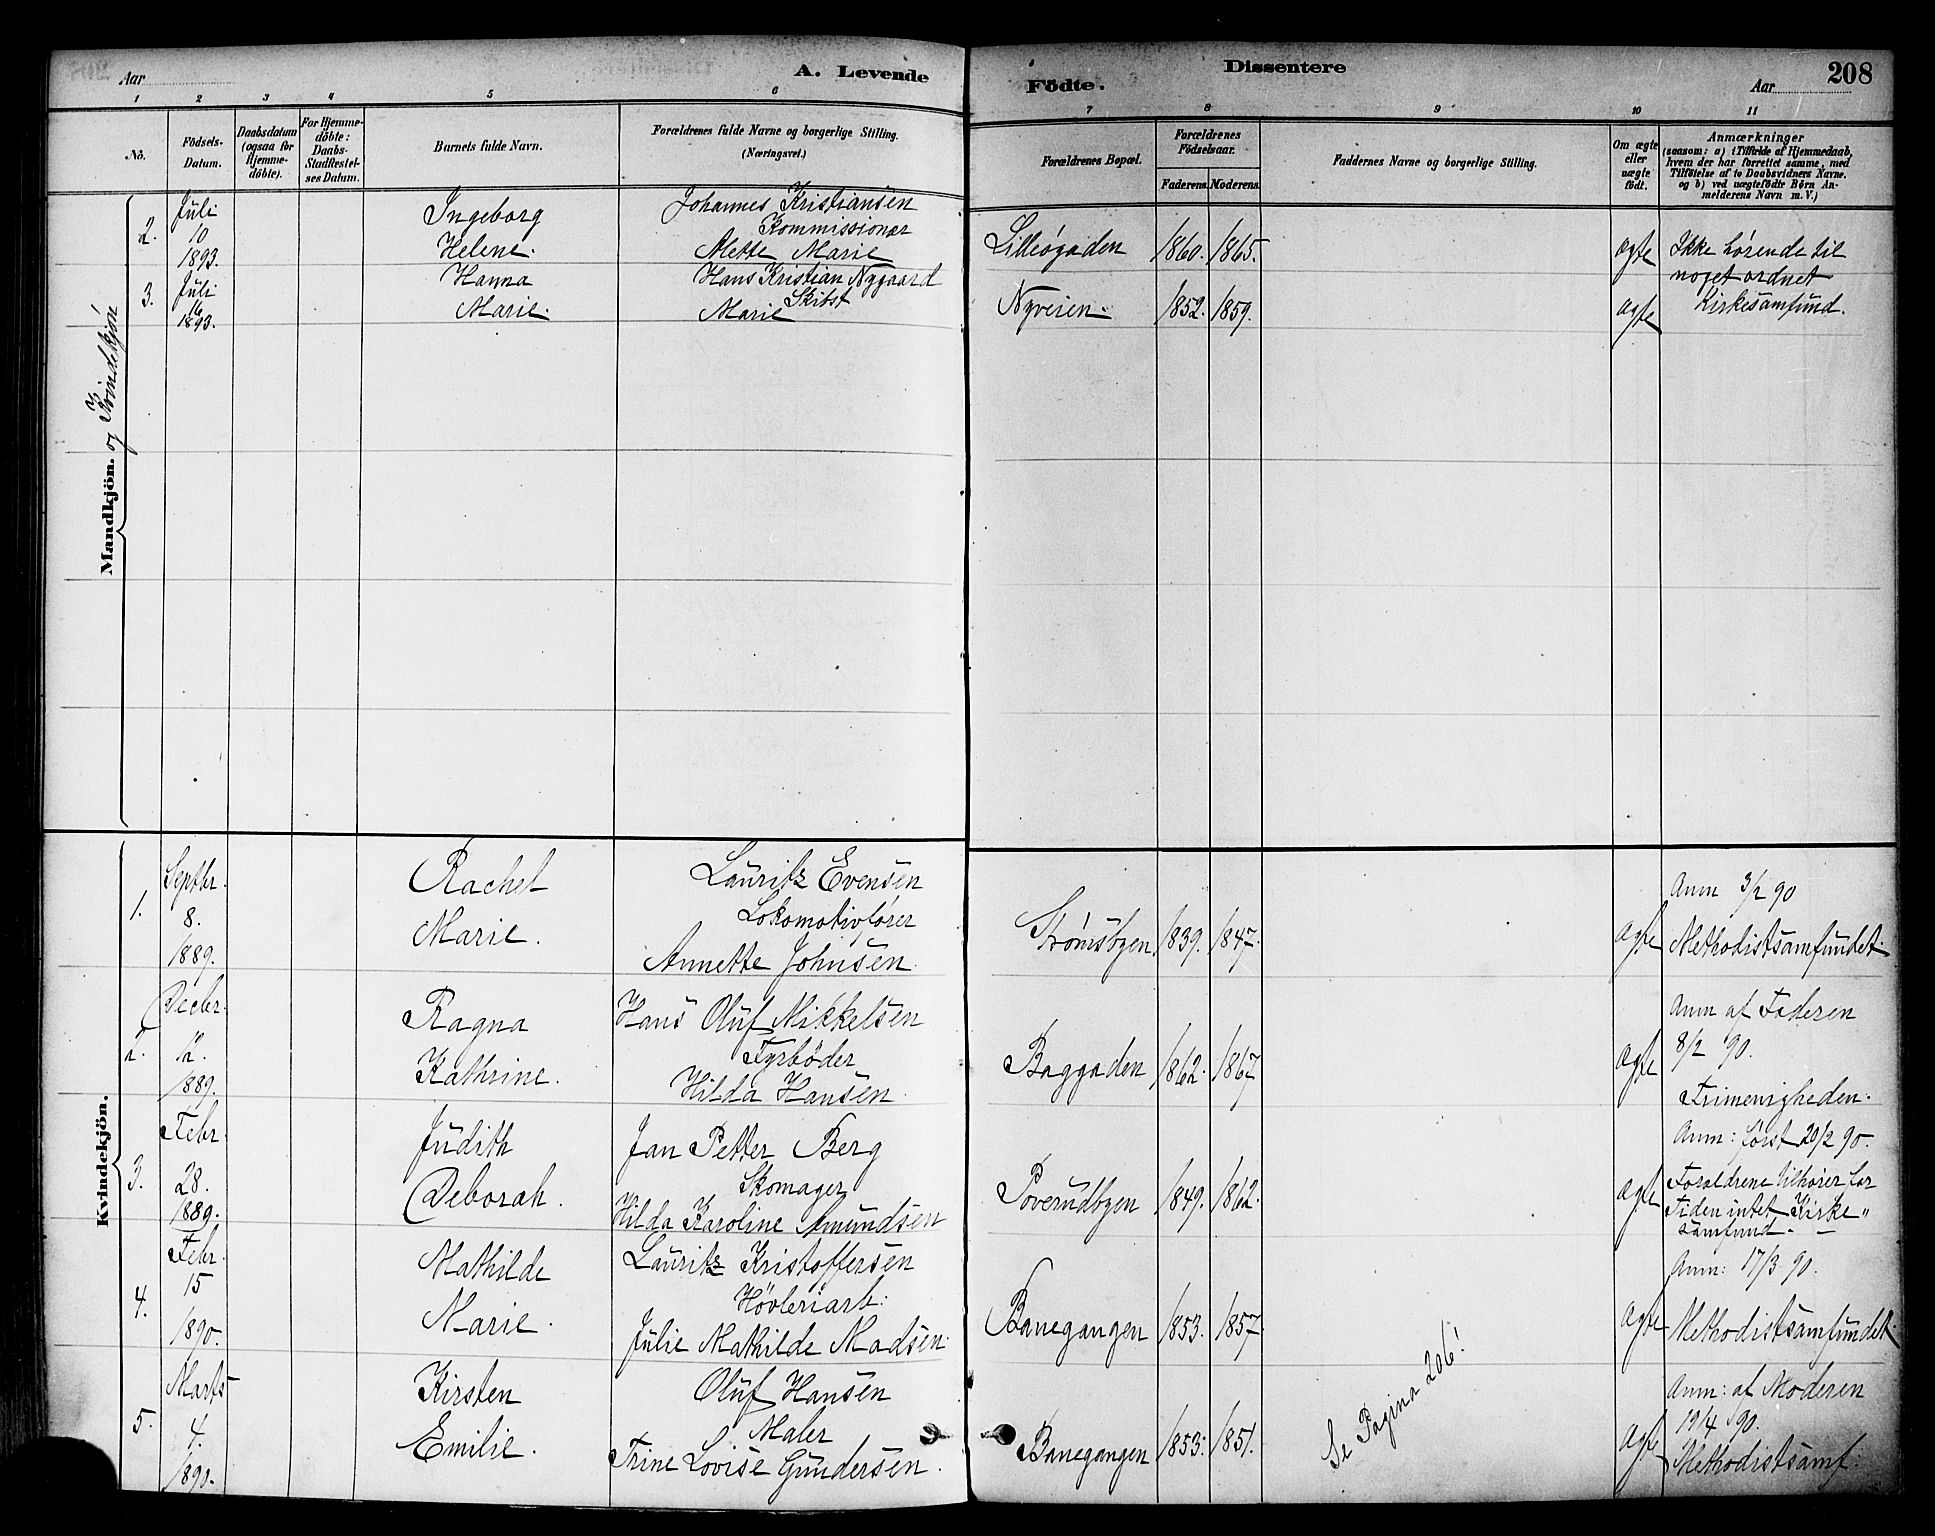 Aar
A. Levende
Födte.
Dissentere
Aar
208
1 2 3 4 5 6 7 8 9 10 11
No.
Födsels-
Datum.
Daabsdatum
(ogsaa for
Hjemme-
döbte).
For Hjemme-
döbte:
Daabs-
Stadfestel-
ses Datum.
Barnets fulde Navn.
Forældrenes fulde Navne og borgerlige Stilling.
(Næringsvei.)
Forældrenes Bopæl.
Forældrenes
Födselsaar.
Faderens.
Moderens.
Faddernes Navne og borgerlige Stilling.
Om ægte
eller
uægte
födt.
Anmærkninger
(saasom: a) i Tilfælde af Hjemmedaab,
hvem der har forrettet samme, med
Tilföielse af to Daabsvidners Navne,
og b) ved uægtefödte Börn An-
melderens Navn m. V.)
Mandkjön. og Kvindekjön
2.
Juli
10
1893.
Ingeborg
Helene.
Johannes Kristiansen
Kommissionær
Mette Marie
Lilleøgaden
1860.
1865.
ægte
Ikke hørende til
noget ordnet
Kirkesamfund.
3.
Juli
16
1893.
Hanna
Marie.
Hans Kristian Nygaard
Skibst
Marie
Nyveien.
1852.
1859.
ægte
Kvindekjön.
1.
Septbr.
8.
1889.
Rachel
Marie.
Lauritz Evensen
Lokomotivfører
Annette Johnsen.
Strømsbyen.
1839.
1847.
ægte
Anm 3/2 90
Methodistsamfundet.
2.
Decbr.
12.
1889.
Ragna
Kathrine.
Hans Oluf Mikkelsen
Fyrböder
Hilda Hansen.
Baggaden
1862.
1867
ægte
Anm af Faderen
8/2 90.
Frimenigheden.
3.
Febr.
28.
1889.
Judith
Deborah.
Jan Petter Berg
Skomager
Hilda Karoline Amundsen
Poverudbyen
1849.
1862.
ægte
Anm: først 20/2 90.
Forældrene tilhører for
Tiden intet Kirke„
samfund. —
4.
Febr.
15
1890.
Mathilde
Marie.
Lauritz Kristoffersen
Hövleriarb:
Julie Mathilde Madsen.
Banegangen
1853.
1857
ægte
Anm: 17/3 90.
Methodistsamfundet.
5.
Marts
4.
1890.
Kirsten
Emilie.
Oluf Hansen
Maler
Trine Lovise Gundersen.
Banegangen
1853.
1851.
Se Pagina 206!
ægte
Anm: af Moderen
19/4 90.
Methodistsamf.